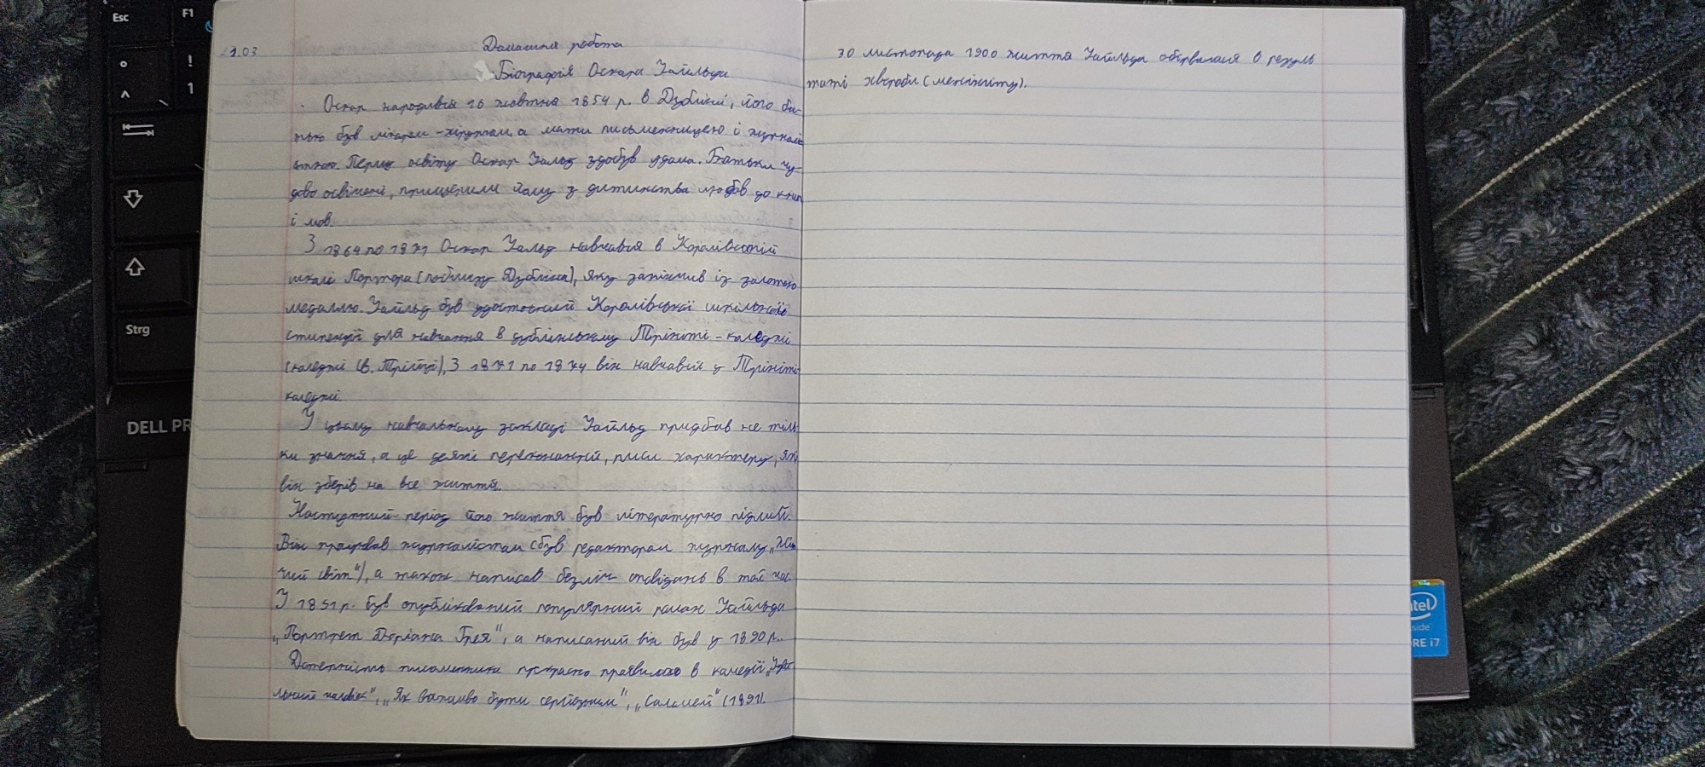 Esc
F1
!
1
Strg
DELL PR
intel
inside
CORE i7
29.03
Домашня робота
Біографія Оскара Уайльда
Оскар народився 16 жовтня 1854 р. в Дубліні, його ба-
тько був лікарем-хірургом, а мати письменницею і журналі
сткою. Першу освіту Оскар Уальд здобув удома. Батьки чу-
дово освічені, прищепили йому з дитинства любов до книг
і мов.
З 1864 по 1871 Оскар Уальд навчався в Королівській
школі Портора (поблизу Дубліна), яку закінчив із золотою
медаллю. Уайльд був удостоєний Королівської шкільної
стипендії для навчання в дублінському Трініті-коледжі
(коледжі Св. Трійці), З 1871 по 1874 він навчавсй у Трініті
коледжі.
У цьому навчальному закладі Уайльд придбав не тіль
ки знання, а ще деякі переконання, риси характеру, які
він зберіг на все життя.
Наступний період його життя був літературно
Він працював журналістом (був редактором журналу „Жін
чий світ"), а також написав безліч оповідань в той час.
У 1891 р. був опублікований популярний роман Уайльда
„Портрет Доріана Грея", а написаний він був у 1890 р..
письменника прекрасно проявилась в комедії „Іdeа
льний чоловік", „Як важливо бути серйозним", „Саломей" (1891).
30 листопада 1900 життя Уайльда обірвалася в резуль
таті хвороби (менінгіту).